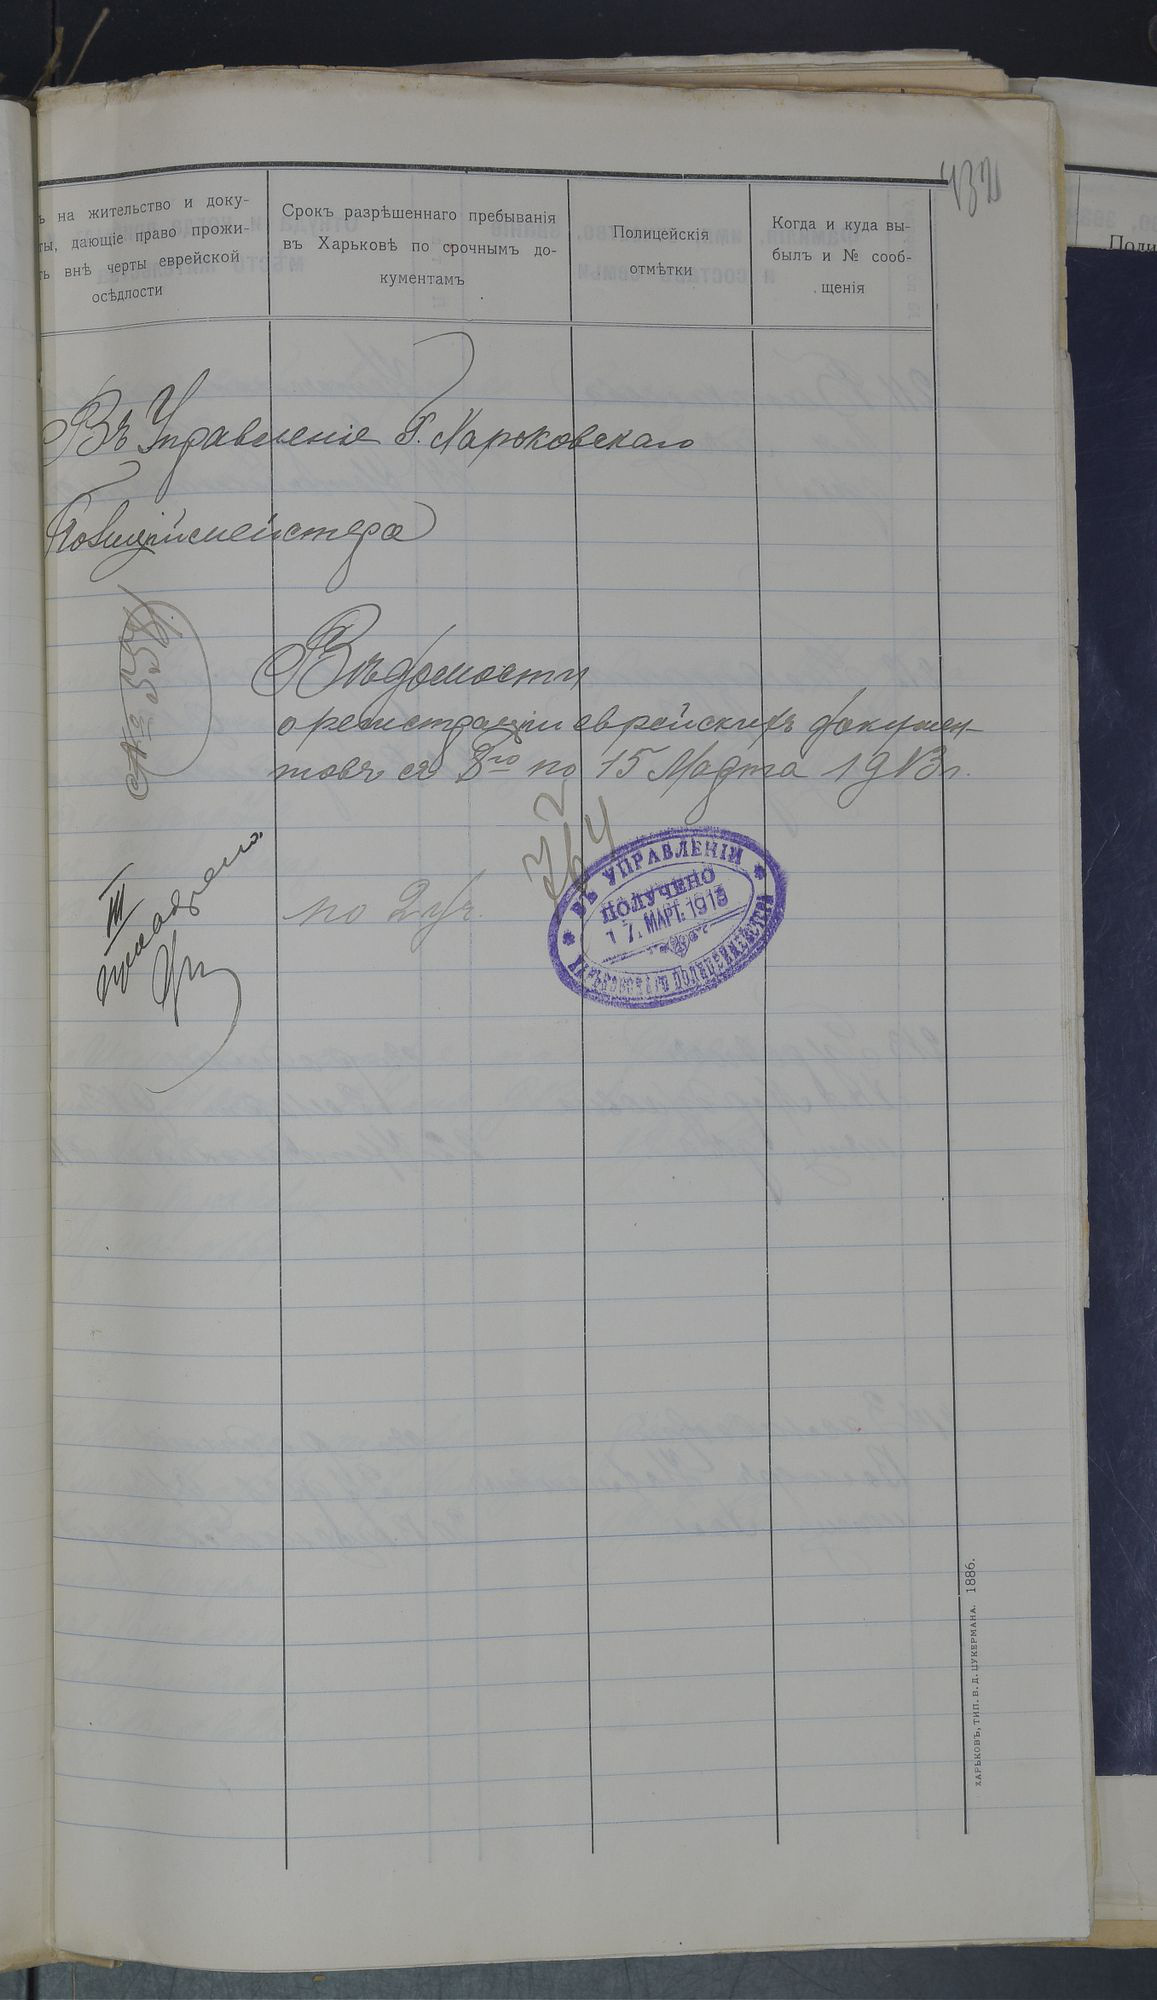 432
ъ на жительство и доку-
ты, дающіе право прожи-
ть внѣ черты еврейской
осѣдлости
Срокъ разрѣшеннаго пребыванія
въ Харьковѣ по срочнымъ до-
кументамъ
Полицейскія
отмѣтки
Когда и куда вы-
былъ и № сооб-
щенія
Поли
Въ Управленіе Г. Харьковскаго
Полицiймейстера
Вѣдомости
о регистраціи еврейскихъ докумен-
товъ съ 8го по 15 Марта 1913 г.
по 2 уч.
III
ВЪ УПРАВЛЕНІИ
ПОЛУЧЕНО
17. МАРТ. 1913
ХАРЬКОВСКАГО ПОЛИЦЕЙМЕЙСТЕРА
ХАРЬКОВЪ, ТИП. В. Д. ЦУКЕРМАНА. 1886.